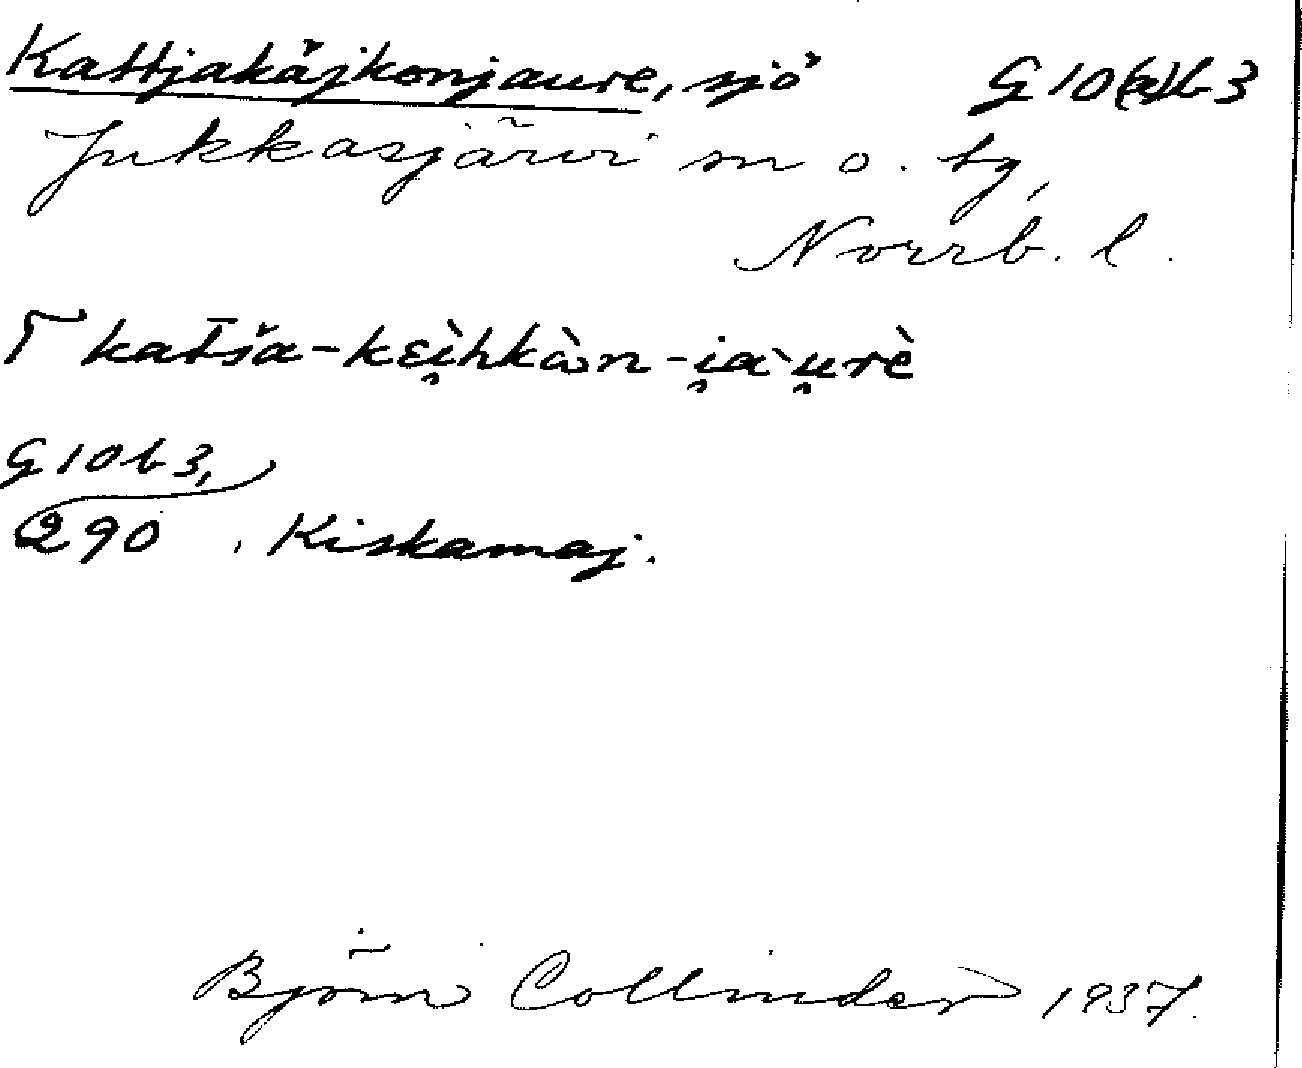 Kattjakåjkonjaure, sjö G 10(a)b 3
Jukkasjärvi sn o. tg,
Norrb. l.
Γ kaťša-kɛì̯hkὼn-i̯àu̯rè
G 10 b 3,
290 . Kiskamaj.
Björn Collinder 1937.